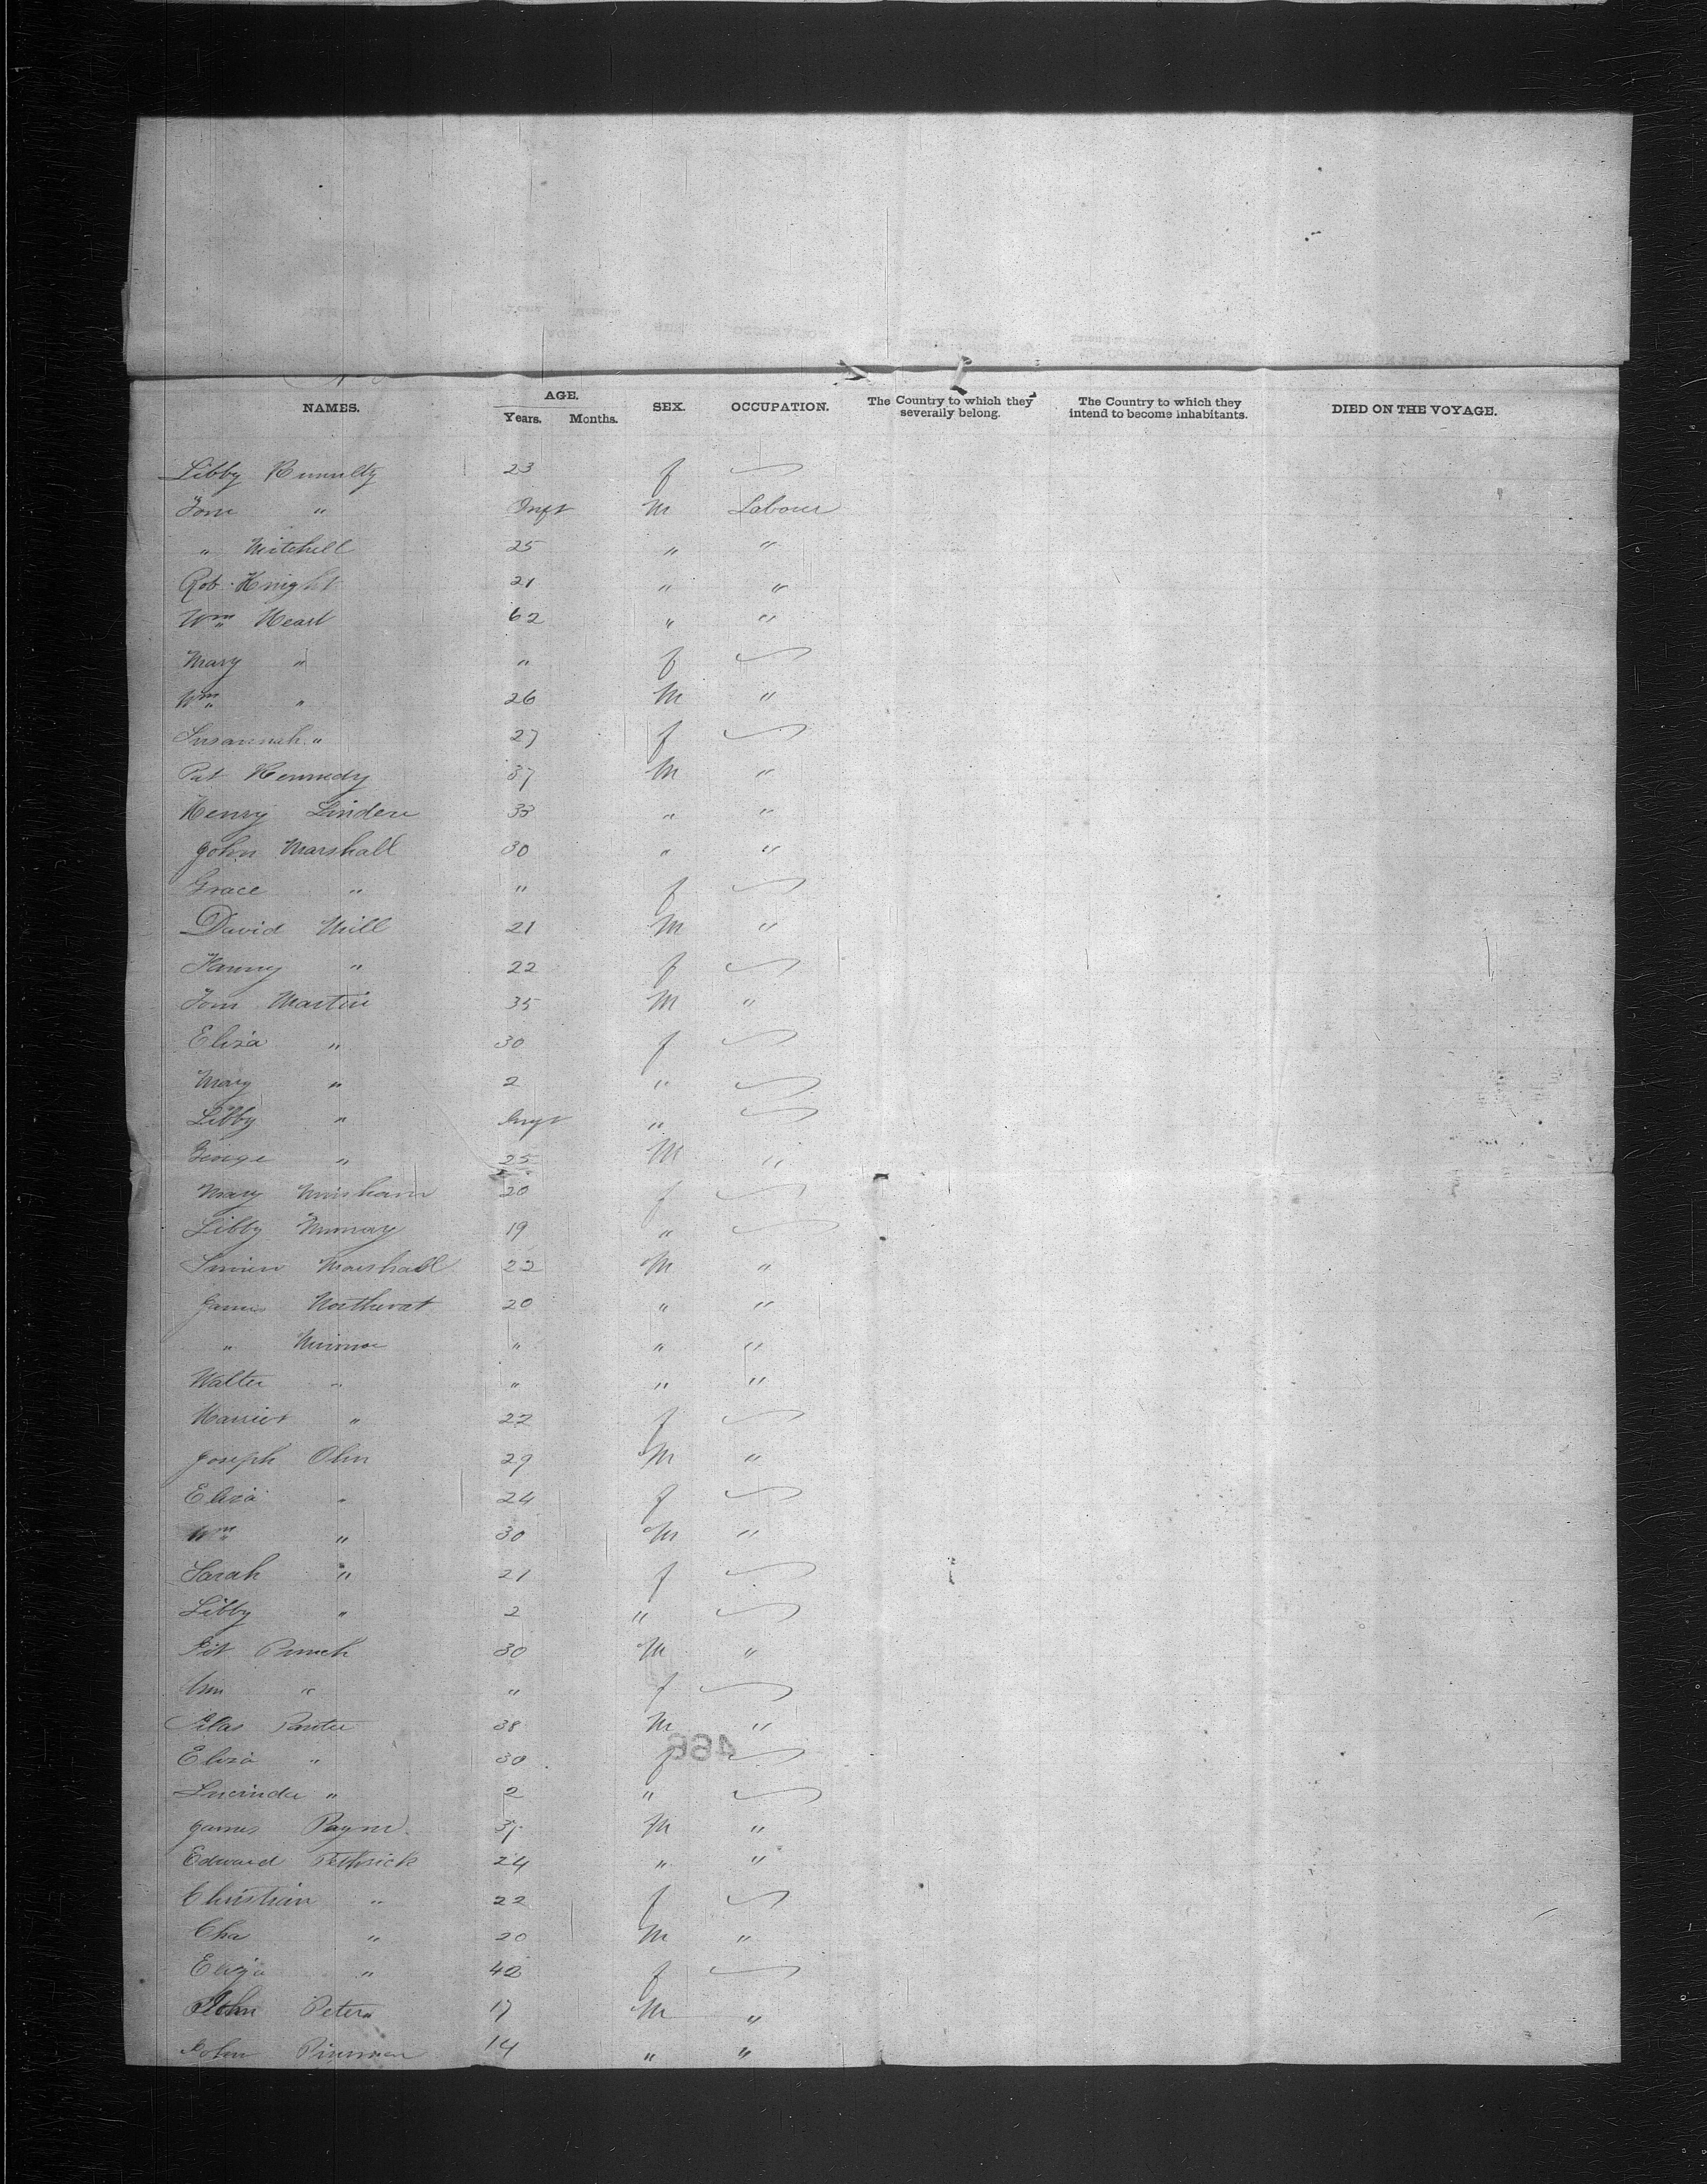 NAMES. AGE. Years. Months. SEX. OCCUPATION. The Country to which they severally belong. The Country to which they intend to become inhabitants. DIED ON THE VOYAGE.
Libby 23 f
Tom " Inft M Labour
" Mitchell 25 " "
Rob Knight 21 " "
Wm 62 " "
Mary " " f
Wm " 26 M "
Susannah " 27 f
Pat Kennedy 37 M "
Henry Linden 33 " "
John Marshall 30 " "
Grace " " f
David Mill 21 M "
Fanny " 22 f
Tom Martin 35 M "
Eliza " 30 f
Mary " 2 "
Libby " Inft "
George " 25 M "
Mary 20 f
Libby 19 "
Marshall 22 M "
James 20 " "
" " " "
Walter " " " "
Harriet " 22 f
Joseph Olin 29 M "
Eliza " 24 f
Wm " 30 M "
Sarah " 21 f
Libby " 2 "
30 M "
Ann " " f
Silas 38 M "
Eliza " 30 f
Lucinda " 2 "
James Payne 37 M "
Edward Pethrick 24 " "
Christian " 22 f
Cha " 20 M "
Eliza " 42 f
John Peters 17 M "
John 14 " "
466